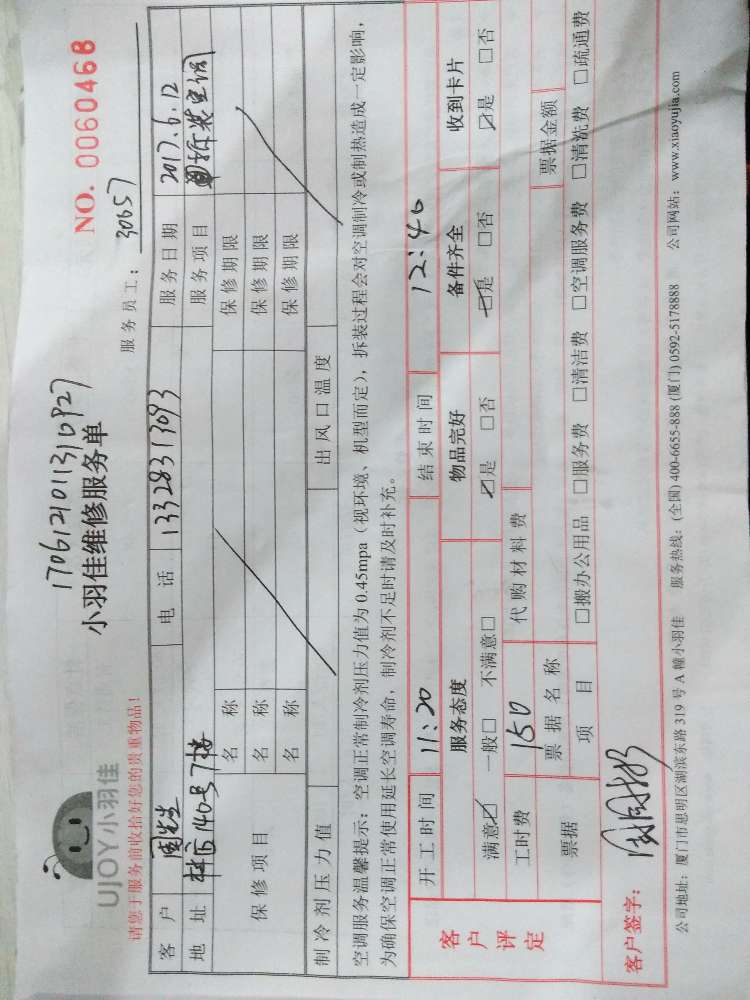 UJOY小羽佳
请您于服务前收拾好您的贵重物品!
17061210113110927
小羽佳维修服务单
NO. 0060468
服务员工: 30657
客 户 周先生 电 话 13328313093 服务日期 2017.6.12
地 址 140号7楼 服务项目 拆装空调
保修项目 名 称 保修期限
名 称 保修期限
名 称 保修期限
制冷剂压力值 出风口温度
空调服务温馨提示:空调正常制冷剂压力值为 0.45mpa(视环境、机型而定),拆装过程会对空调制冷或制热造成一定影响,
为确保空调正常使用延长空调寿命,制冷剂不足时请及时补充。
客户评定
开工时间 11:20 结束时间 12:40
服务态度 物品完好 备件齐全 收到卡片
满意☑ 一般□ 不满意□ ☑是 □否 ☑是 □否 ☑是 □否
工时费 150 代购材料费
票据 票据名称 票据金额
项 目 □搬办公用品 □服务费 □清洁费 □空调服务费 □清洗费 □疏通费
客户签字:
公司地址:厦门市思明区湖滨东路 319 号 A 幢小羽佳 服务热线:(全国) 400-6655-888 (厦门) 0592-5178888 公司网站:www.xiaoyujia.com